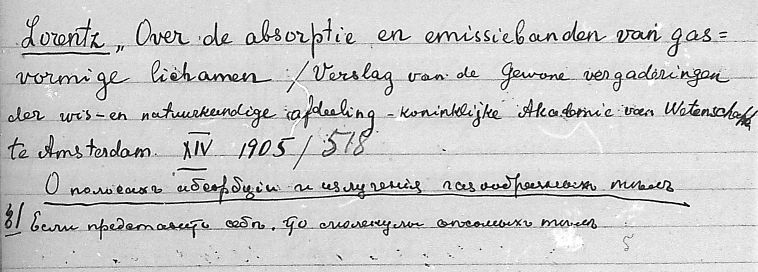 Lorentz „Over de absorptie en emissiebanden van gas=
vormige lichamen /Verslag van de Gewone vergaderingen
der wis-en natuurkundige afdeeling - koninklijke Akademie van Wetenschaffe
te Amsterdam XIV 1905/518
О полосахъ абсорбціи и излученія газообразныхъ тѣлъ
§1 Если представить себѣ, что молекулы весомыхъ тѣлъ